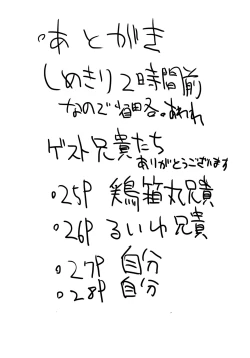 ・あとがき
しめきり2時間前
なので省略。あわれ
ゲスト兄貴たち
ありがとうございます
・25P 鶏箱丸兄貴
・26P るいゎ兄貴
・27P 自分
・28P 自分